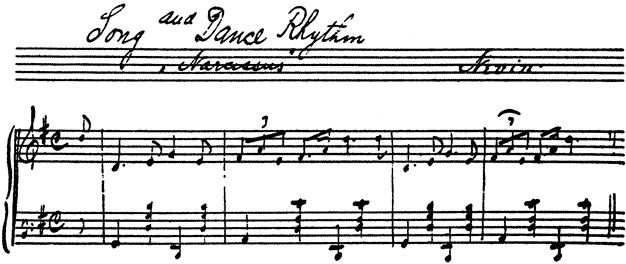 Song and Dance Rhythm
"Narcissus" Nevin
3 3